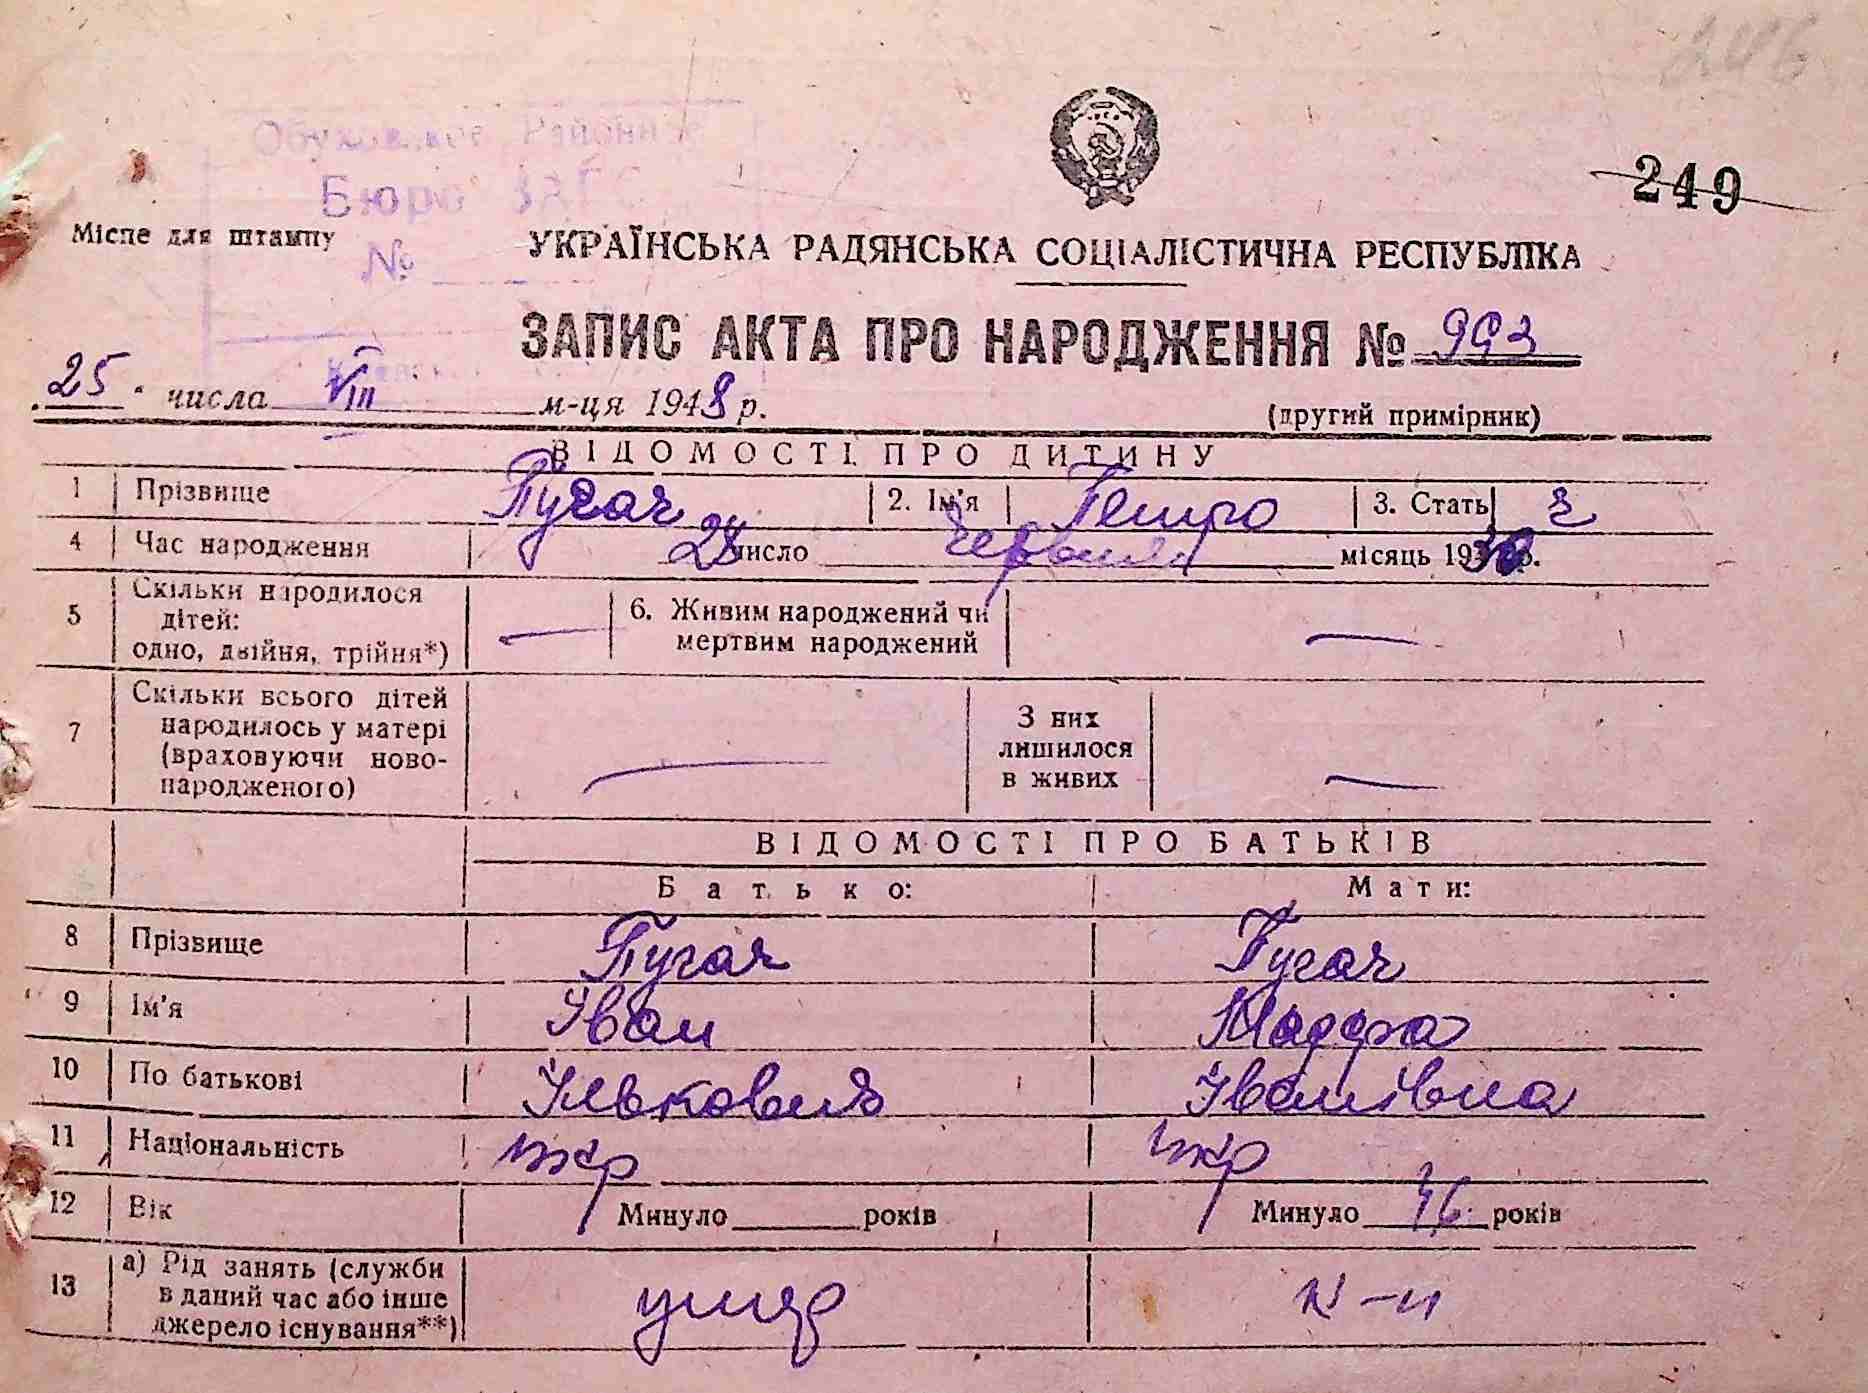 246
249
Обуховское Районное
Бюро ЗАГС
№
Місце для штампу
УКРАЇНСЬКА РАДЯНСЬКА СОЦІАЛІСТИЧНА РЕСПУБЛІКА
ЗАПИС АКТА ПРО НАРОДЖЕННЯ № 993
25 числа VIII м-ця 1948 р.
(другий примірник)
ВІДОМОСТІ ПРО ДИТИНУ
1 Прізвище Пугач 2. Ім'я Петро 3. Стать ч
4 Час народження число червня місяць 1930 р.
5 Скільки народилося
дітей:
одно, двійня, трійня*) —
6. Живим народжений чи
мертвим народжений —
7 Скільки всього дітей
народилось у матері
(враховуючи ново-
народженого) —
З них
лишилося
в живих —
ВІДОМОСТІ ПРО БАТЬКІВ
Батько: Мати:
8 Прізвище Пугач Пугач
9 Ім'я Іван
10 По батькові Ількович Іванівна
11 Національність укр укр
12 Вік Минуло років Минуло 46 років
13 а) Рід занять (служби
в даний час або інше
джерело існування**) умер к-п